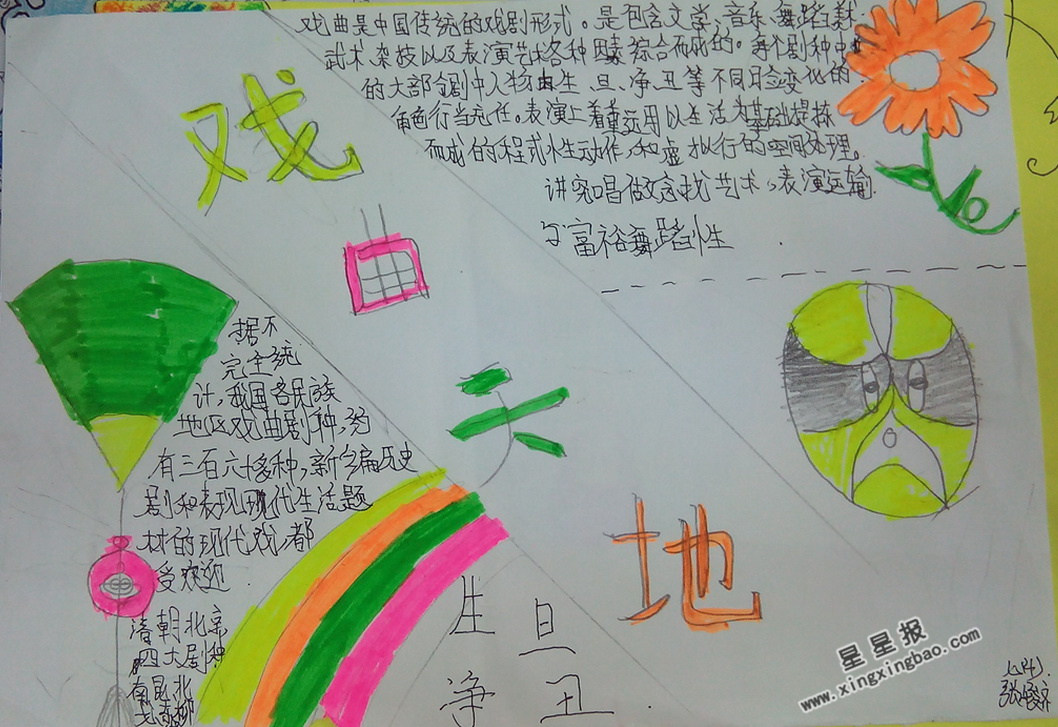 戏曲是中国传统的戏剧形式。是包含文学、音乐、舞蹈美术
武术、杂技以及表演艺术各种因素综合而成的。每个剧种中
的大部剧中人物由生、旦、净、丑等不同脸变化的
角色行当充任。表演上着重运用以生活为基础提拣
而成的程式性动作,和虚拟行的空间处理。
讲究唱做念找艺术,表演运输
富裕舞蹈性
戏
曲
天
地
据不
完全统
计,我国各民族
地区戏曲剧种,约
有三百六十多种,新编历史
剧和表现现代生活题
材的现代戏,都
受欢迎
清朝北京
四大剧种
南昆北
弋东柳
生 旦
净 丑
星星报
www.xingxingbao.com